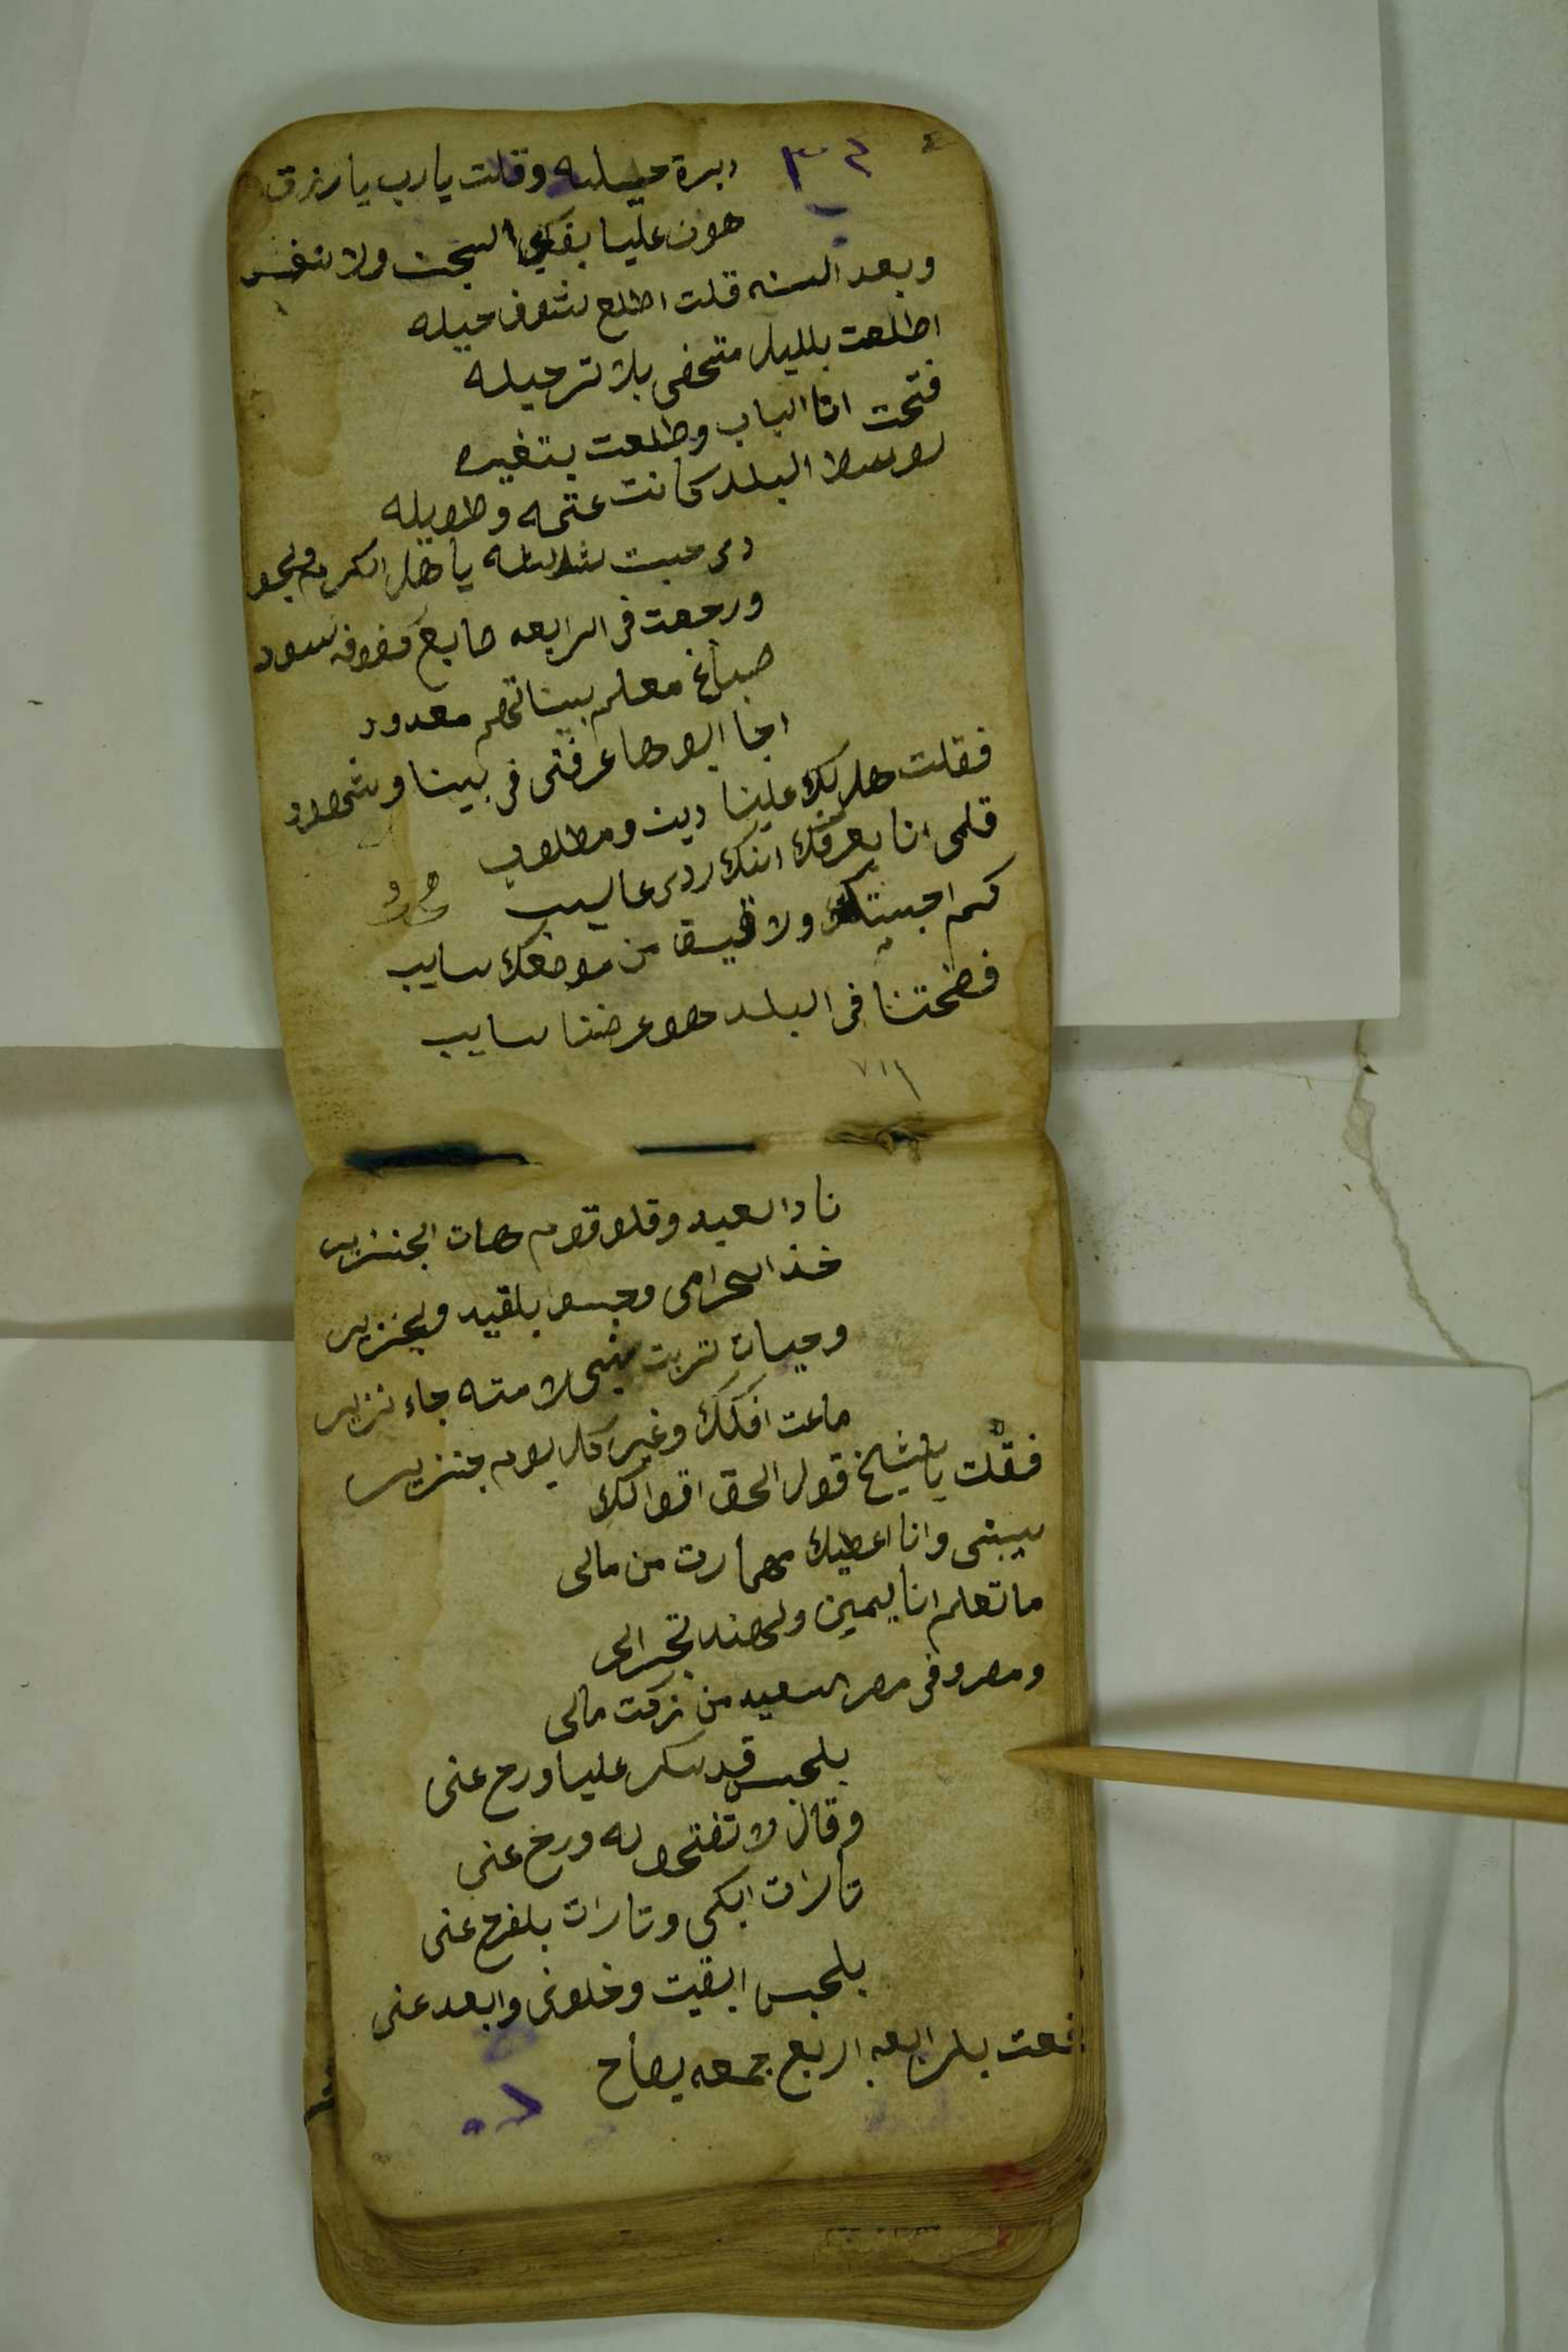 ٣٢
دبرة حيله وقلت يارب يارزق
هون عليا بفكي السجن ولا تغير
وبعد السنه قلت اطلع نشوف حيله
اطلعت بلليل متخفى بلا ترحيله
فتحت انا الباب وطلعت بتغيره
لوسط البلد كانت عتمه وطويله
درجت ثلاثه ياهل الكرم
ورجعت فى الرابعه صابغ كفوفه سود
صباغ معلم بيناتهم معدود
اجا ابوها عرفنى فى بيننا وشهود
فقلت هل لك علينا دين ومطلوب
قلى انا بعرفك انك ردى عايب
كم اجيتك ولا فيق من موضعك سايب
فضحتنا فى البلد هو عرضنا سايب
٧١١
نادا لعبد وقلو قوم هات الجنزير
خذ الحرامى وحبسو بلقيد ولجنزير
وحيات تربت نبى لامته جاء نزير
ماعت افكك وغير كل يوم جنزير
فقلت ياشيخ قول الحق اقوالك
سيبنى وانا اعطيك مهمارت من مالى
ماتعلم انا ليمين ولهند تجرالى
ومصروفى مصر السعيد من زكت مالى
بلحبس قد سكر عليا ورح عنى
وقال لا تفتحو له ورخ عنى
تارات ابكى وتارات بلفرح عنى
بلحبس ابقيت وخلونى وابعد عنى
بلرابعه اربع جمعه يصاح